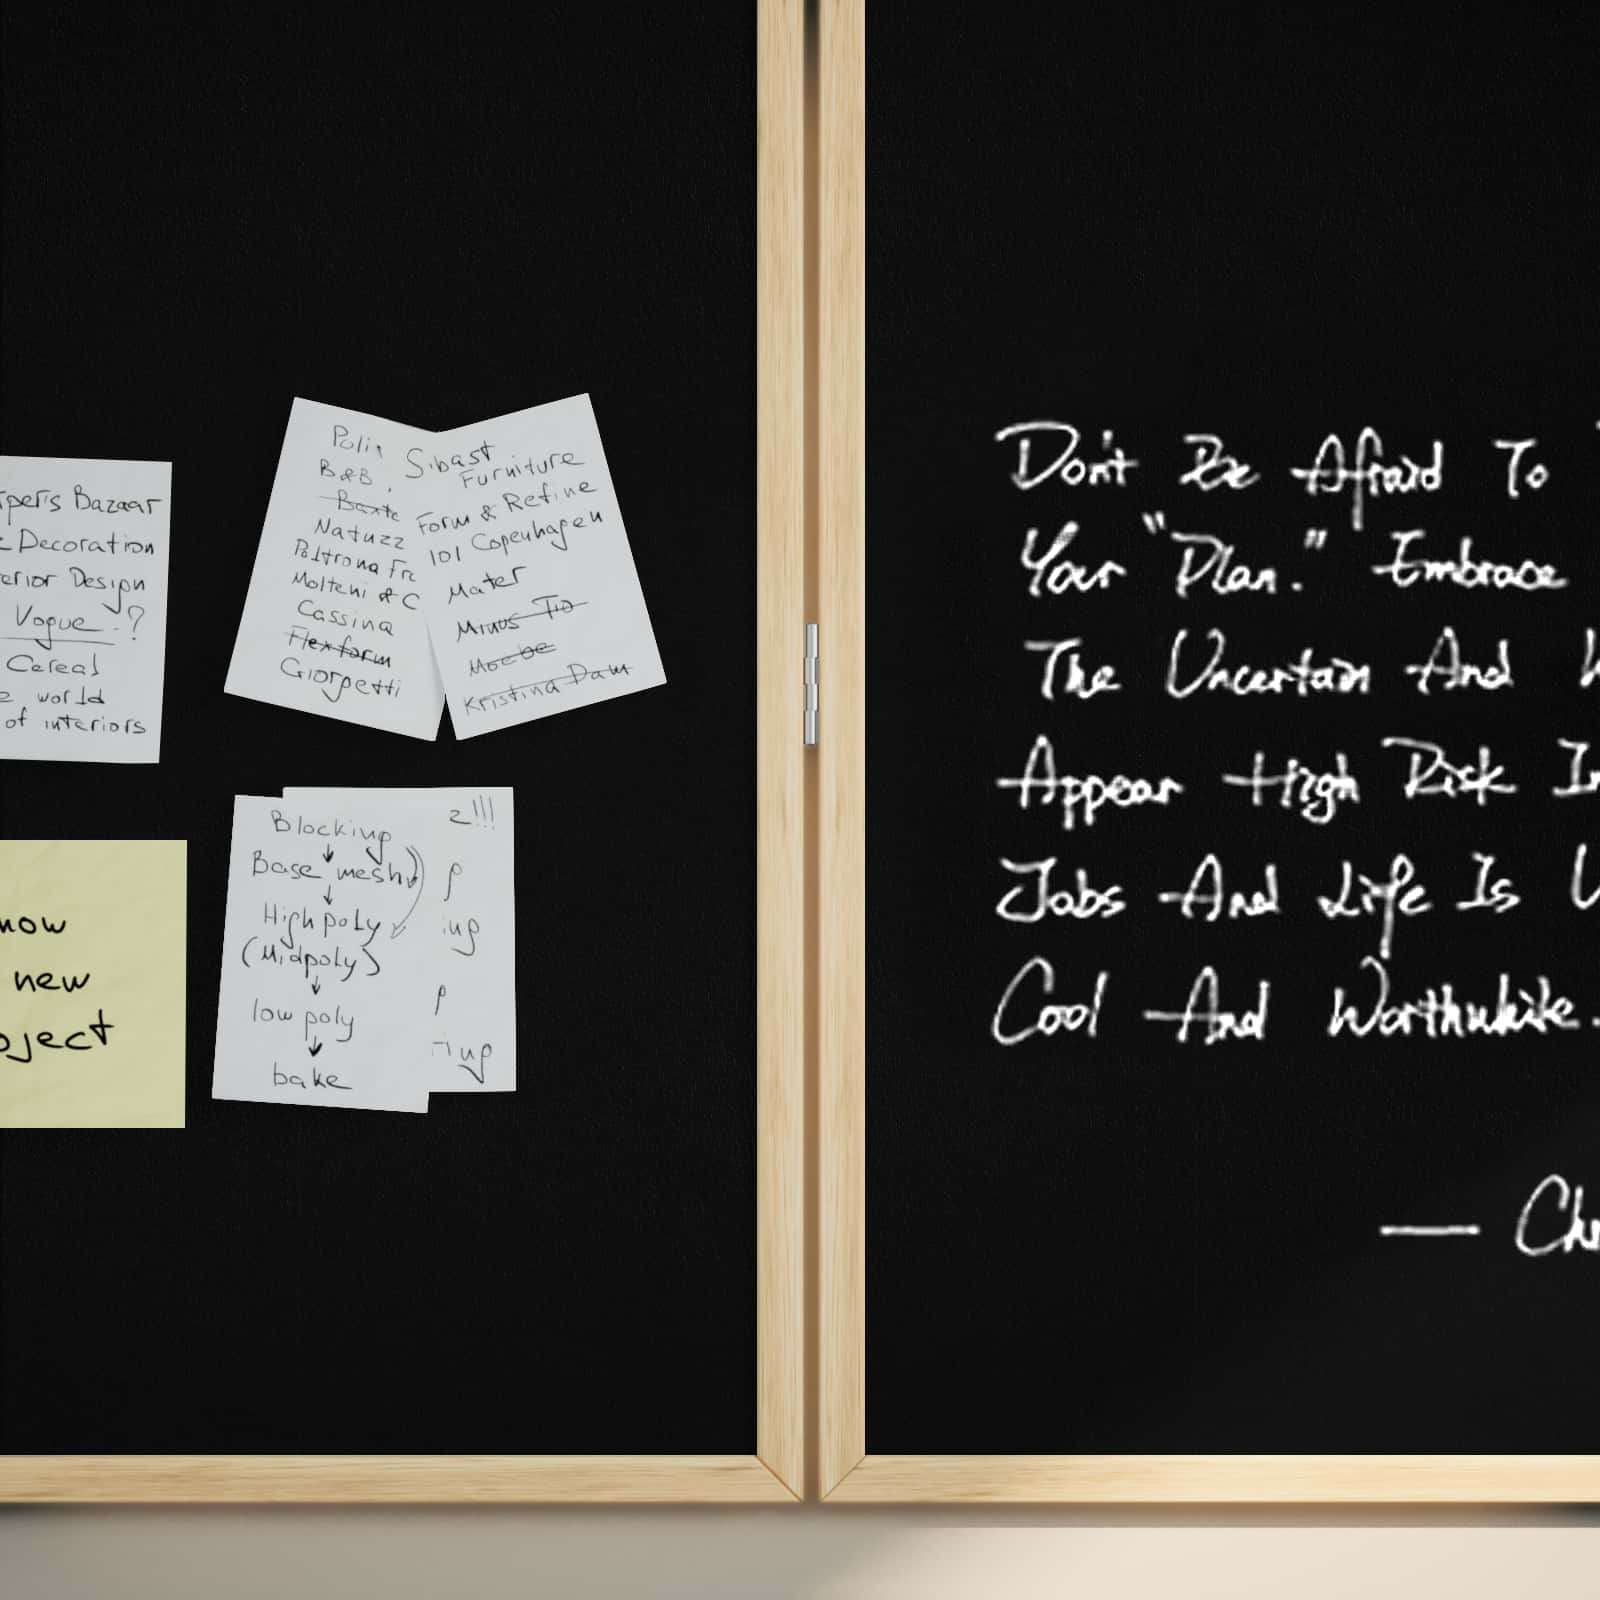 Bazaar
Decoration
Design
Vogue ?
Cereal
world
of interiors
now
new
B&B
Baxte
Natuzz
Poltrona Fr
Molteni & C
Cassina
Flexform
Giorgetti
Sibast
Furniture
Form & Refine
101 Copenhagen
Mater
Minus Tio
Moebe
Kristina Dam
Blocking
Base mesh
High poly
(Midpoly)
low poly
bake
Don't Be Afraid To
Your "Plan." Embrace
The Uncertain And
Appear High Risk In
Jobs And Life Is
Cool And Worthwhile.
—